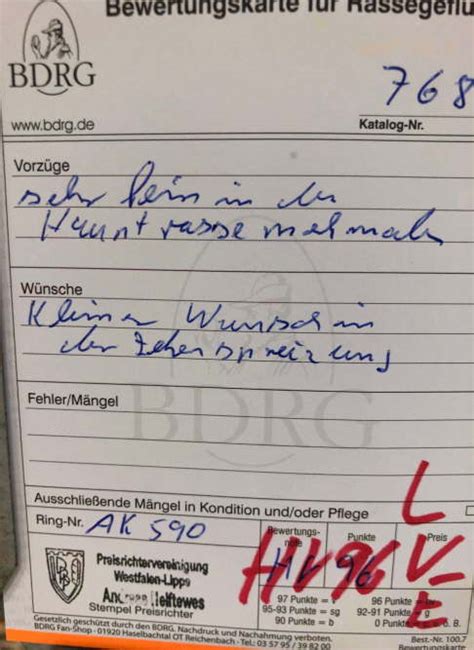 Bewertungskarte für Rassegeflü
BDRG
www.bdrg.de
768
Katalog-Nr.
Vorzüge
sehr fein in den
Hauptrassemerkmalen
Wünsche
Kleiner Wunsch in
der Zehenspreizung
Fehler/Mängel
BDRG
Ausschließende Mängel in Kondition und/oder Pflege
L
Ring-Nr. AK 590
Bewertungsnote
Punkte
Preis
HV 96
HV96 V
Preisrichtervereinigung
Westfalen-Lippe
Stempel Preisrichter
97 Punkte = v
96 Punkte = hv
95-93 Punkte = sg
92-91 Punkte = g
90 Punkte = b
0 Punkte = u. o. B.
Gesetzlich geschützt durch den BDRG. Nachdruck und Nachahmung verboten.
BDRG Fan-Shop · 01920 Haselbachtal OT Reichenbach · Tel.: 03 57 95 / 39 82 00
Best.-Nr. 100.7
Bewertungskarte